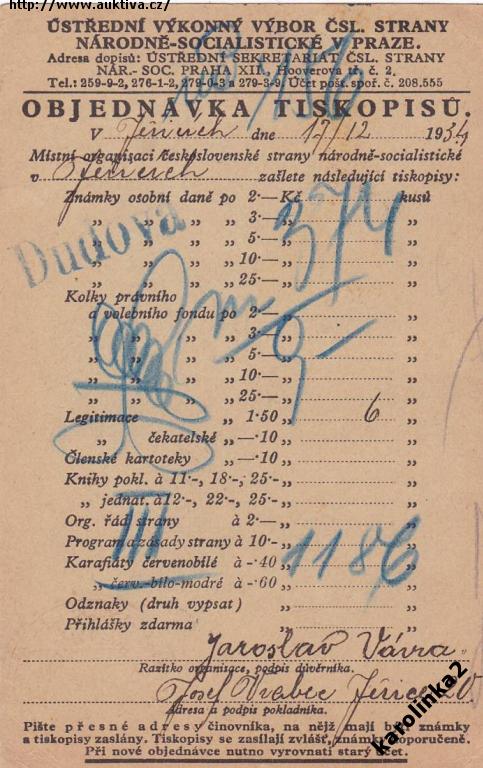 http://www.auktiva.cz/
ÚSTŘEDNÍ VÝKONNÝ VÝBOR ČSL. STRANY
NÁRODNĚ-SOCIALISTICKÉ V PRAZE.
Adresa dopisů: ÚSTŘEDNÍ SEKRETARIÁT ČSL. STRANY
NÁR.- SOC. PRAHA XII., Hooverova tř. č. 2.
Tel.: 259-9-2, 276-1-2, 279-0-3 a 279-3-9. Účet pošt. spoř. č. 208.555
OBJEDNÁVKA TISKOPISŮ.
V dne 17/12 1934
Místní organisaci československé strany národně-socialistické
v zašlete následující tiskopisy:
Známky osobní daně po 2·— Kč kusů
„ „ „ „ 3·— „ „
„ „ „ „ 5·— „ „
„ „ „ „ 10·— „ „
„ „ „ „ 25·— „ „
374
Dudova
Kolky právního
a volebního fondu po 2·— „ „
„ „ „ „ 3·— „ „
„ „ „ „ 5·— „ „
„ „ „ „ 10·— „ „
„ „ „ „ 25·— „ „
Legitimace „ 1·50 „ 6 „
„ čekatelské „ —·10 „ „
Členské kartoteky „ —·10 „ „
Knihy pokl. à 11·-, 18·-, 25·- „ „
„ jednat. à 12·-, 22·-, 25·- „ „
Org. řád strany à 2·— „ „
Program a zásady strany à 10·- „ „
Karafiáty červenobílé à -·40 „ „
„ červ.-bílo-modré à -·60 „ „
III
1186
Odznaky (druh vypsat) „ „
Přihlášky zdarma „ „
Jaroslav Vávra
Razítko organisace, podpis důvěrníka.
Josef Vrabec
Adresa a podpis pokladníka.
Pište přesné adresy činovníka, na nějž mají být známky
a tiskopisy zaslány. Tiskopisy se zasílají zvlášť, známky doporučeně.
Při nové objednávce nutno vyrovnati starý účet.
karolinka2